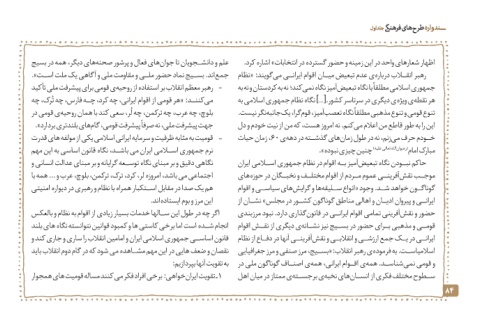 سند واره طرح‌های فرهنگی متداول
اظهار شعارهای واحد در این زمینه و حضور گسترده در انتخابات» اشاره کرد.
رهبر انقلاب درباره‌ی عدم تبعیض میان اقوام ایرانی می‌گویند: «نظام
جمهوری اسلامی مطلقاً با نگاه تبعیض‌آمیز نگاه نمی‌کند؛ نه به کردستان و نه به
هر نقطه‌ی ویژه‌ی دیگری در سرتاسر کشور. [...] نگاه نظام جمهوری اسلامی به
تنوع قومی و تنوع مذهبی مطلقاً نگاه تعصب‌آمیز، قوم‌گرا، یک‌جانبه‌نگر نیست.
این را به طور قاطع من اعلام می‌کنم. نه امروز هست، که من از نیت خودم و دل
خودم حرف می‌زنم، نه در طول زمان‌های گذشته در دهه‌ی ۶۰، زمان حیات
مبارک امام چنین چیزی نبوده».
حاکم نبودن نگاه تبعیض‌آمیز به اقوام در نظام جمهوری اسلامی ایران
موجب نقش‌آفرینی عموم مردم از اقوام مختلف و نخبگان در حوزه‌های
گوناگون خواهد شد. وجود «انواع سلیقه‌ها و گرایش‌های سیاسی و اقوام
ایرانی و پیروان ادیان و اهالی مناطق گوناگون کشور در مجلس» نشان از
حضور و نقش‌آفرینی تمامی اقوام ایرانی در قانون‌گذاری دارد. نبود مرزبندی
قومی و مذهبی برای حضور در بسیج نیز نشانه‌ی دیگری از نقش اقوام
ایرانی در یک جمع ارزشی و انقلابی و نقش‌آفرینی آنها در دفاع از نظام
اسلامیست. به فرموده‌ی رهبر انقلاب: «بسیج، مرز صنفی و مرز جغرافیایی
و قومی نمی‌شناسد. همه‌ی اقوام ایرانی، همه‌ی اصناف گوناگون ملی در
سطوح مختلف فکری از انسان‌های نخبه‌ی برجسته‌ی ممتاز در میان اهل
علم و دانشجویان تا جوان‌های فعال و پرشور صحنه‌های دیگر، همه در بسیج
جمع‌اند. بسیج نماد حضور ملی و مقاومت ملی و آگاهی یک ملت است».
- رهبر معظم انقلاب بر استفاده از روحیه‌ی قومی برای پیشرفت ملی تأکید
می‌کنند: «هر قومی از اقوام ایرانی، چه کرد، چه فارس، چه ترک، چه
بلوچ، چه عرب، چه ترکمن، چه لر، سعی کند با همان روحیه‌ی قومی در
جهت پیشرفت ملی، نه صرفاً پیشرفت قومی، گام‌های بلندتری بردارد».
- قومیت به مثابه ظرفیت و سرمایه ایرانی اسلامی یکی از مؤلفه های قدرت
نرم جمهوری اسلامی ایران می باشد، نگاه قانون اساسی به این مهم
نگاهی دقیق و بر مبنای نگاه توسعه گرایانه و بر مبنای عدالت انسانی و
اجتماعی می باشد، امروزه لر، کرد، ترک، ترکمن، بلوچ، عرب و ... همه با
هم یک صدا در مقابل استکبار همراه با نظام و رهبری در دیواره امنیتی
این مرز و بوم ایستاده‌اند.
اگر چه در طول این سالها خدمات بسیار زیادی از اقوام به نظام و بالعکس
انجام شده است اما برخی کاستی ها و کمبود قوانین نتوانسته نگاه های بلند
قانون اساسی جمهوری اسلامی ایران و امامین انقلاب را ساری و جاری کند و
نقصان و ضعف هایی در این مهم مشاهده می شود که در گام دوم انقلاب باید
به تقویت آنها بپردازیم:
۱ـ تقویت ایران‌خواهی: برخی افراد فکر می کنند مساله قومیت های همجوار
۸۴